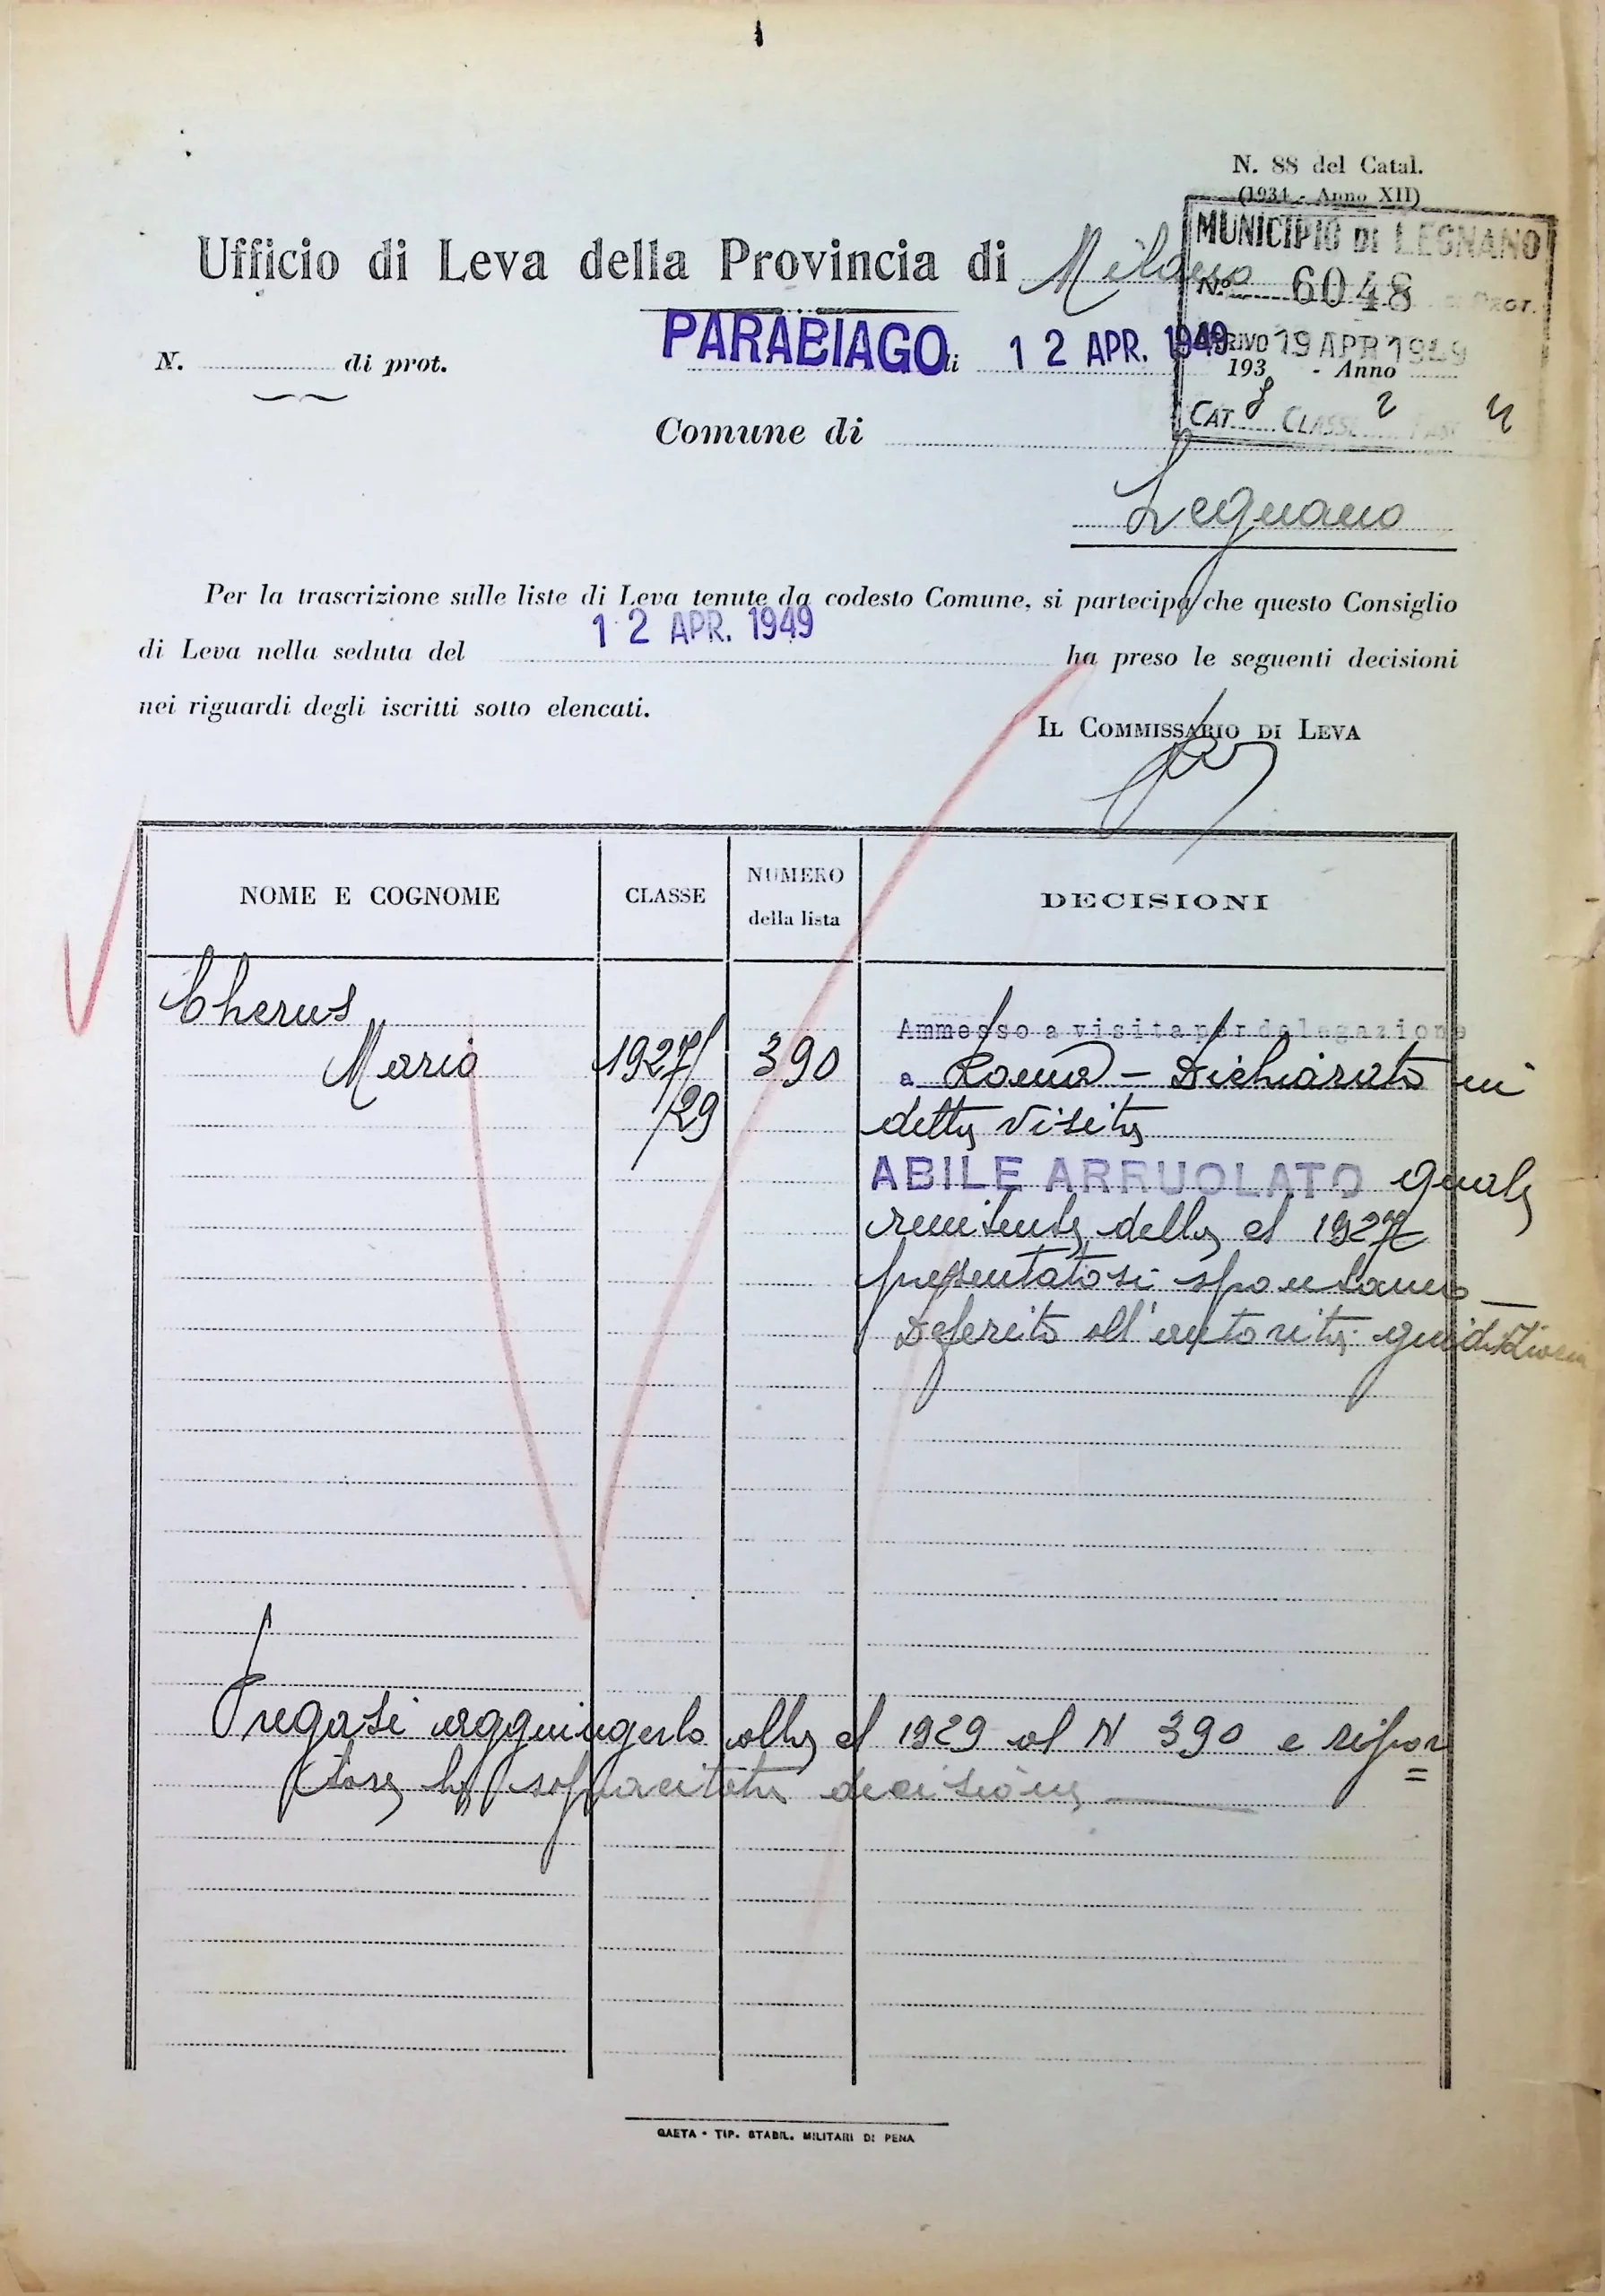 N. 88 del Catal.
(1934 - Anno XII)
MUNICIPIO DI LEGNANO
Ufficio di Leva della Provincia di Milano
No 6048 Prot.
PARABIAGO, li 12 APR. 1949
ARRIVO 19 APR 1949
N. di prot.
193 - Anno
CAT. 8 CLASSE 2
Comune di
Legnano
Per la trascrizione sulle liste di Leva tenute da codesto Comune, si partecipa che questo Consiglio
di Leva nella seduta del 12 APR. 1949 ha preso le seguenti decisioni
nei riguardi degli iscritti sotto elencati.
IL COMMISSARIO DI LEVA
NOME E COGNOME CLASSE NUMERO della lista DECISIONI
Cherus
Mario 1927/29 390
Ammesso a visita per delegazione
a Roma - Dichiarato in
detta visita
ABILE ARRUOLATO quale
renitente della cl 1927
presentatosi spontaneo
Deferito all'autorità giudiziaria
Pregasi aggiungerlo alla cl 1929 al N 390 e ripor=
tare la sopracitata decisione
GAETA - TIP. STABIL. MILITARI DI PENA